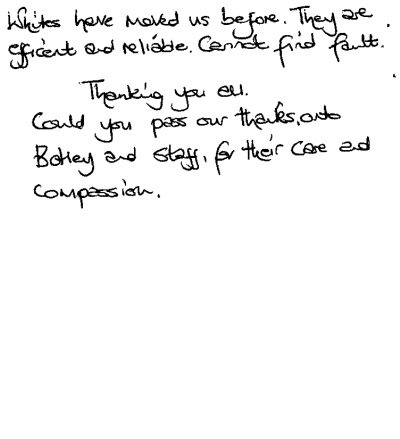 Whites have moved us before. They are
efficient and reliable. Cannot find fault.
Thanking you all.
Could you pass our thanks, onto
and staff, for their care and
compassion.